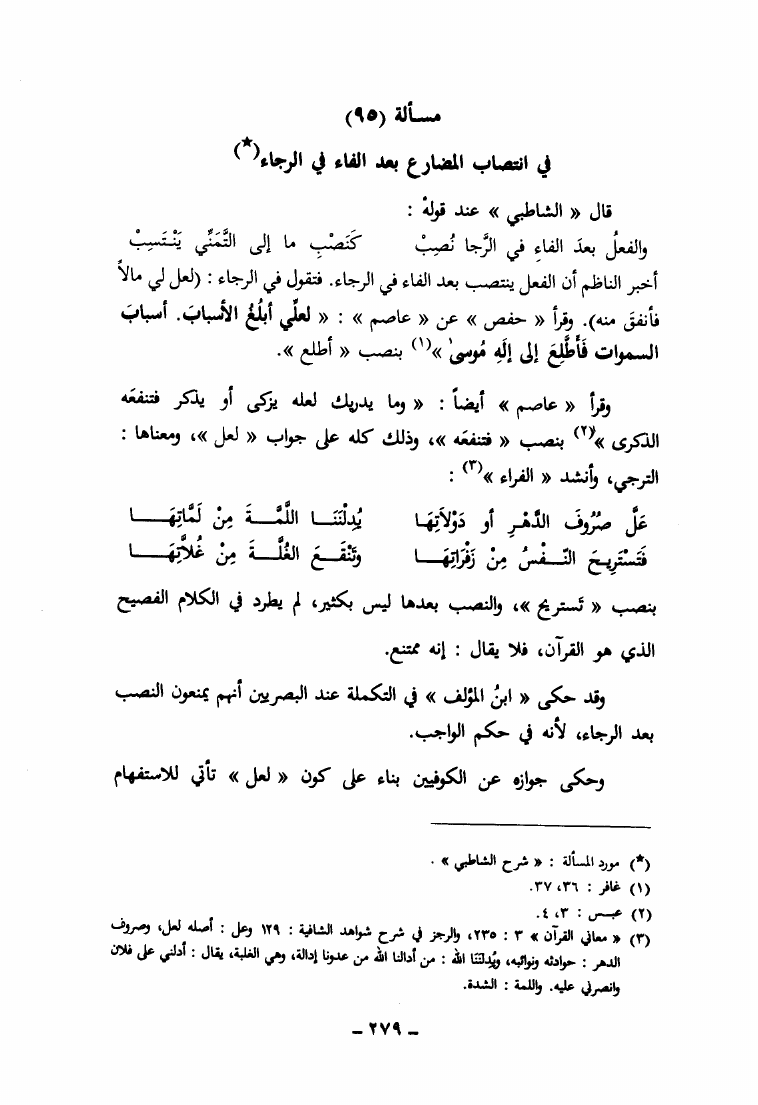 مسألة (٩٥)
في انتصاب المضارع بعد الفاء في الرجاء(*)
قال « الشاطبي » عند قولهْ :
والفعلُ بعدَ الفاءِ في الرَّجا نُصِبْ كَنَصْبِ ما إلى التَّمَنِّي يَنْتَسِبْ
أخبر الناظم أن الفعل ينتصب بعد الفاء في الرجاء. فتقول في الرجاء : (لعل لي مالاً
فأنفقَ منه). وقرأ « حفص » عن « عاصم » : « لعلِّي أبلُغُ الأسبابَ. أسبابَ
السموات فَأَطَّلِعَ إلى إلَهِ مُوسى »(١) بنصب « أطلع ».
وقرأ « عاصم » أيضاً : « وما يدريك لعله يزكى أو يذكر فتنفعَه
الذكرى »(٢) بنصب « فتنفعَه »، وذلك كله على جواب « لعل »، ومعناها :
الترجي، وأنشد « الفراء »(٣) :
عَلَّ صُرُوفَ الدَّهْرِ أو دَوْلاَتِهَا يُدِلْنَنَا اللَّمَّةَ مِنْ لَمَّاتِهَا
فَتَسْتَرِيحَ النَّفْسُ مِنْ زَفْرَاتِهَا وتَنْقَعَ الغُلَّةَ مِنْ غُلاَّتِهَا
بنصب « تَستريح »، والنصب بعدها ليس بكثير، لم يطرد في الكلام الفصيح
الذي هو القرآن، فلا يقال : إنه ممتنع.
وقد حكى « ابنُ المؤلف » في التكملة عند البصريين أنهم يمنعون النصب
بعد الرجاء، لأنه في حكم الواجب.
وحكى جوازه عن الكوفيين بناء على كون « لعل » تأتي للاستفهام
(*) مورد المسألة : « شرح الشاطبي » .
(١) غافر : ٣٦، ٣٧.
(٢) عبس : ٣، ٤.
(٣) « معاني القرآن » ٣ : ٢٣٥، والرجز في شرح شواهد الشافية : ١٢٩ وعل : أصله لعل، وصروف
الدهر : حوادثه ونوائبه، ويُدِلْنَنَا الله : من أدالنا الله من عدونا إدالة، وهي الغلبة، يقال : أدلني على فلان
وانصرني عليه. واللمة : الشدة.
– ٢٧٩ –